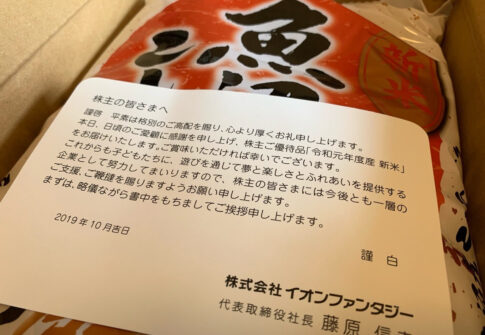 魚沼
こし
新米
株主の皆さまへ
謹啓　平素は格別のご高配を賜り、心より厚くお礼申し上げます。
本日、日頃のご愛顧に感謝を申し上げ、株主ご優待品「令和元年度産 新米」
をお届けいたします。ご賞味いただければ幸いでございます。
これからも子どもたちに、遊びを通じて夢と楽しさとふれあいを提供する
企業として努力してまいりますので、株主の皆さまには今後とも一層の
ご支援、ご鞭撻を賜りますようお願い申し上げます。
まずは、略儀ながら書中をもちましてご挨拶申し上げます。
謹　白
2019年10月吉日
株式会社 イオンファンタジー
代表取締役社長 藤原 信